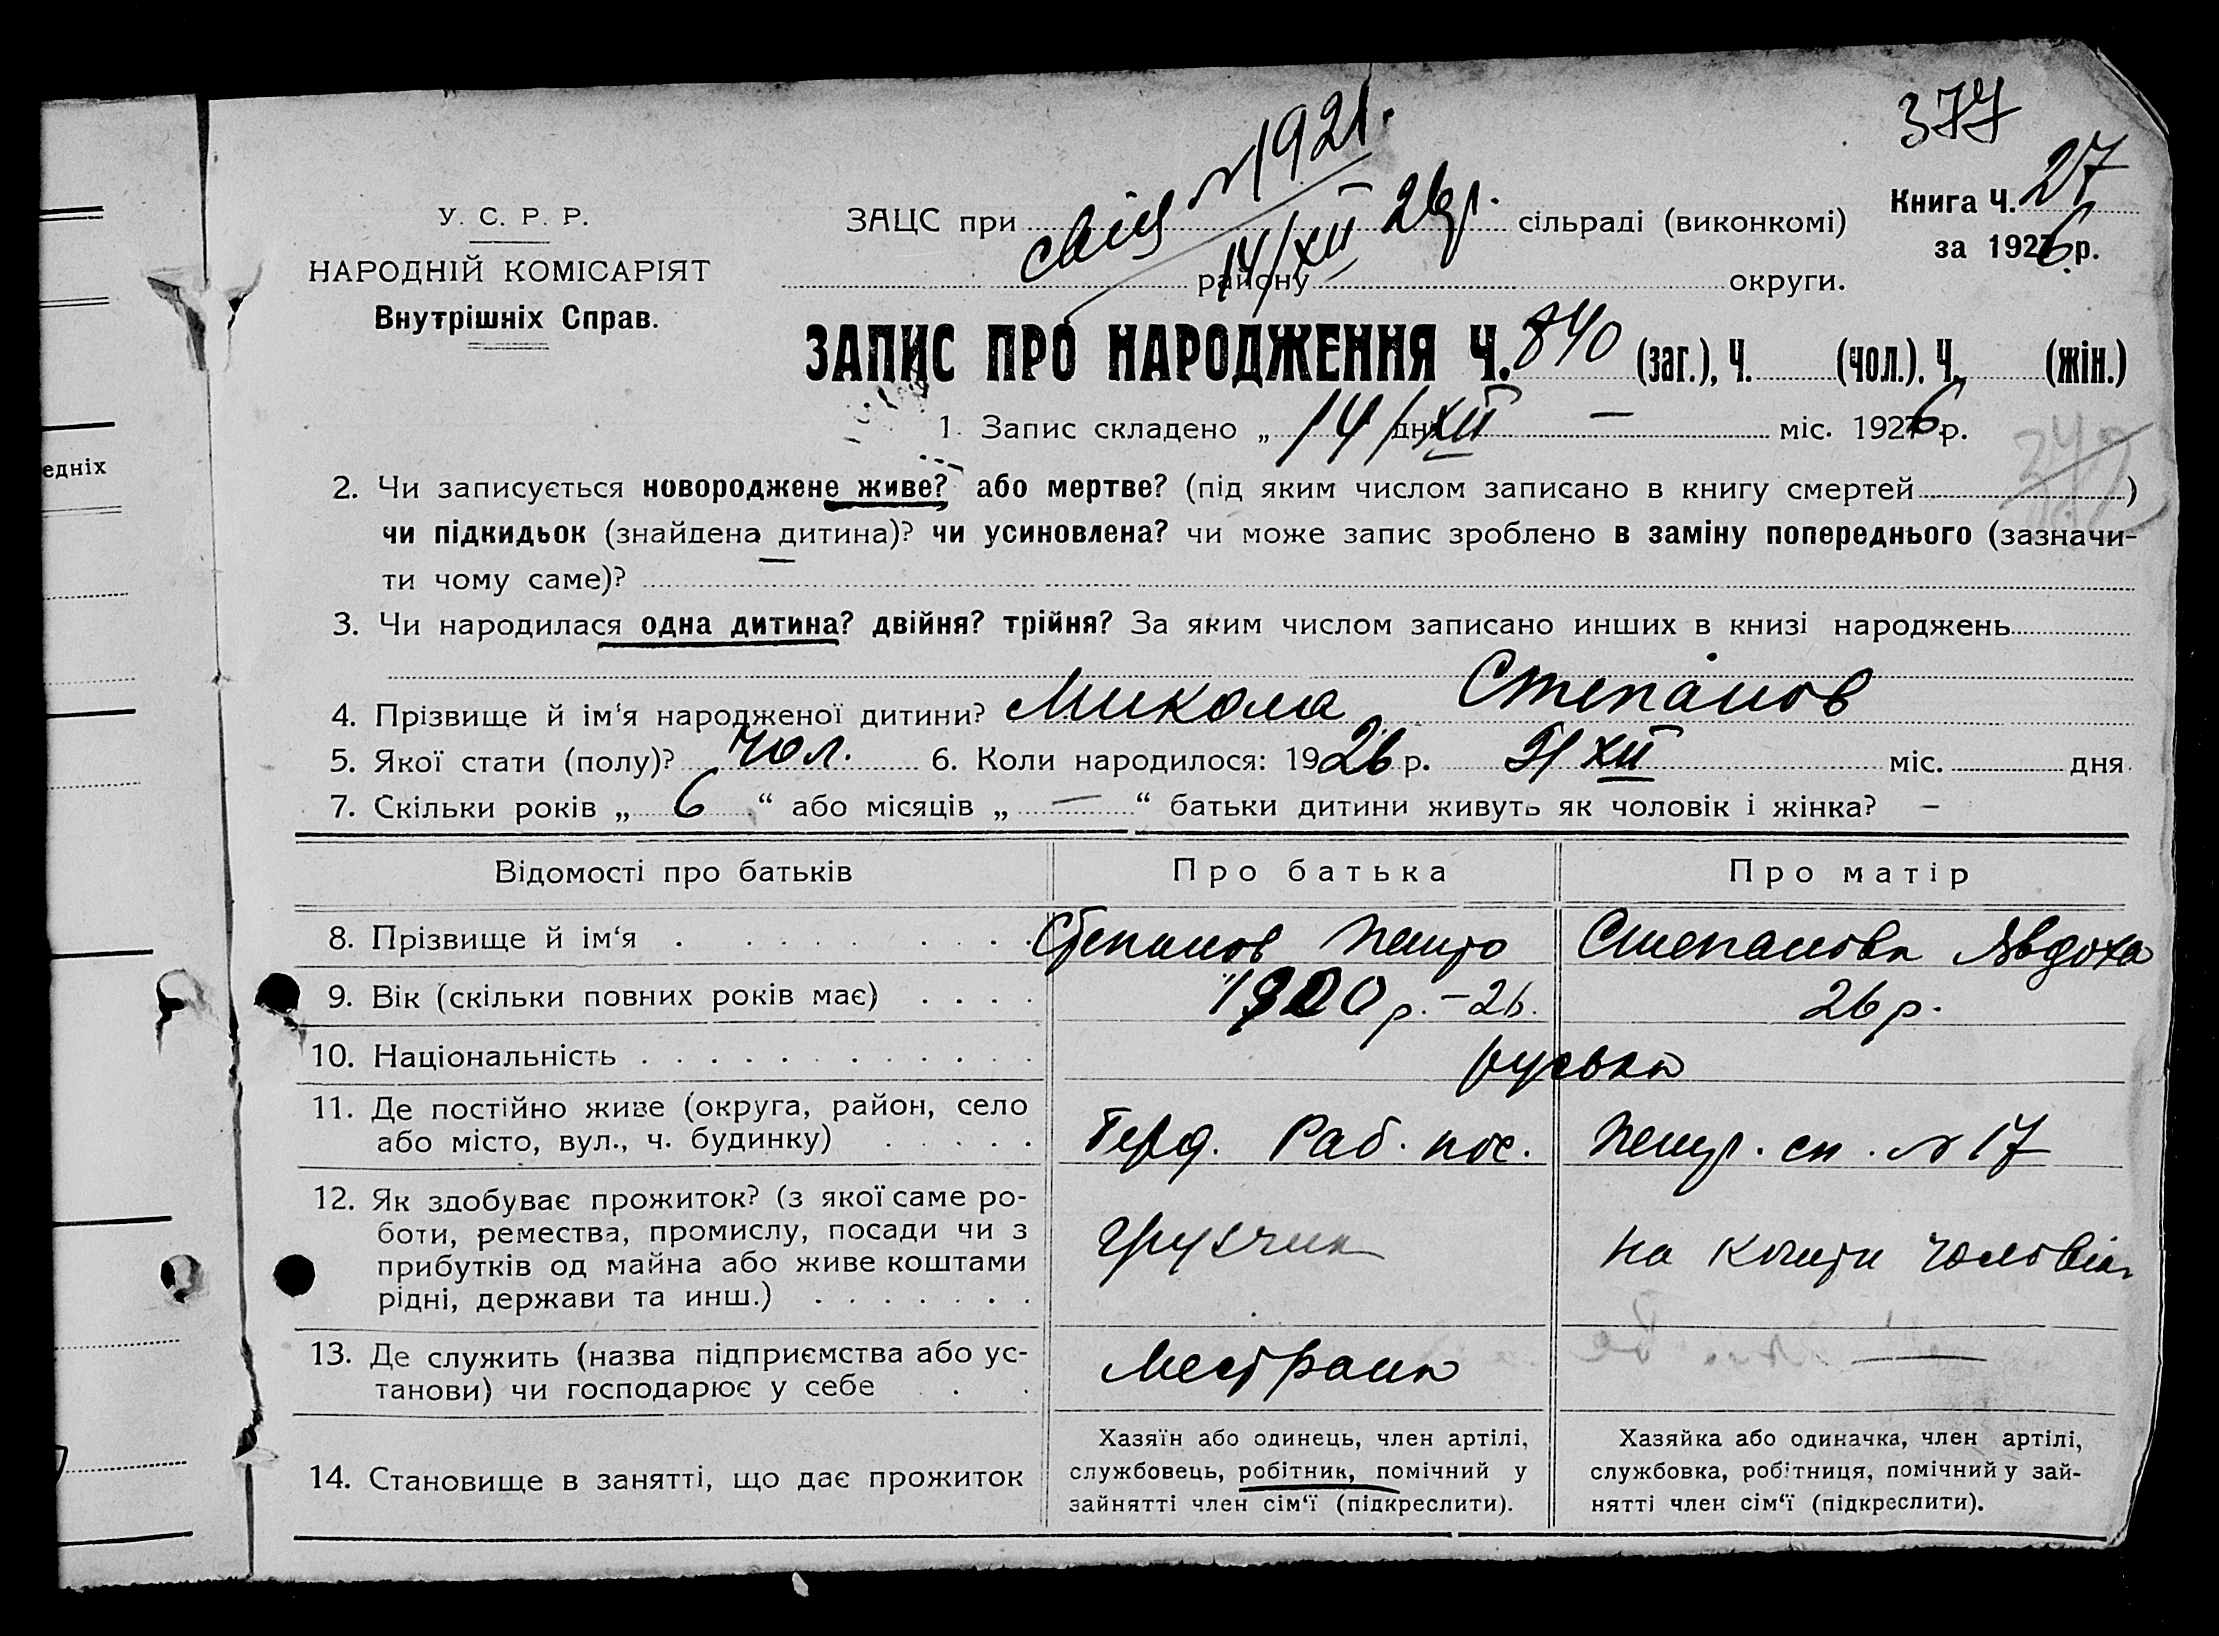 377
У. С. Р. Р.
НАРОДНІЙ КОМІСАРІЯТ
Внутрішніх Справ.
№ 1921.
14/XII 26 р.
ЗАЦС при сільраді (виконкомі)
району округи.
Книга Ч. 27
за 1926 р.
ЗАПИС ПРО НАРОДЖЕННЯ Ч. 840 (заг.), Ч. (чол.), Ч. (жін.)
1. Запис складено „ 14/XII дня — міс. 1926 р.
едніх
2. Чи записується новороджене живе? або мертве? (під яким числом записано в книгу смертей )
чи підкидьок (знайдена дитина)? чи усиновлена? чи може запис зроблено в заміну попереднього (зазначи-
ти чому саме)?
3. Чи народилася одна дитина? двійня? трійня? За яким числом записано инших в книзі народжень
4. Прізвище й ім'я народженої дитини? Микола Степанов
5. Якої стати (полу)? чол. 6. Коли народилося: 1926 р. XII міс. дня
7. Скільки років „ 6 “ або місяців „ — “ батьки дитини живуть як чоловік і жінка? –
Відомості про батьків Про батька Про матір
8. Прізвище й ім‘я Степанов Петро Степанова Явдоха
9. Вік (скільки повних років має) 1900 р. – 26. 26 р.
10. Національність руська
11. Де постійно живе (округа, район, село
або місто, вул., ч. будинку) Раб. пос. № 17
12. Як здобуває прожиток? (з якої саме ро-
боти, ремества, промислу, посади чи з
прибутків од майна або живе коштами
рідні, держави та инш.) грузчик на кошти чоловіка
13. Де служить (назва підприємства або ус-
танови) чи господарює у себе —
14. Становище в занятті, що дає прожиток
Хазяїн або одинець, член артілі,
службовець, робітник, помічний у
зайнятті член сім‘ї (підкреслити).
Хазяйка або одиначка, член артілі,
службовка, робітниця, помічний у зай-
нятті член сім‘ї (підкреслити).